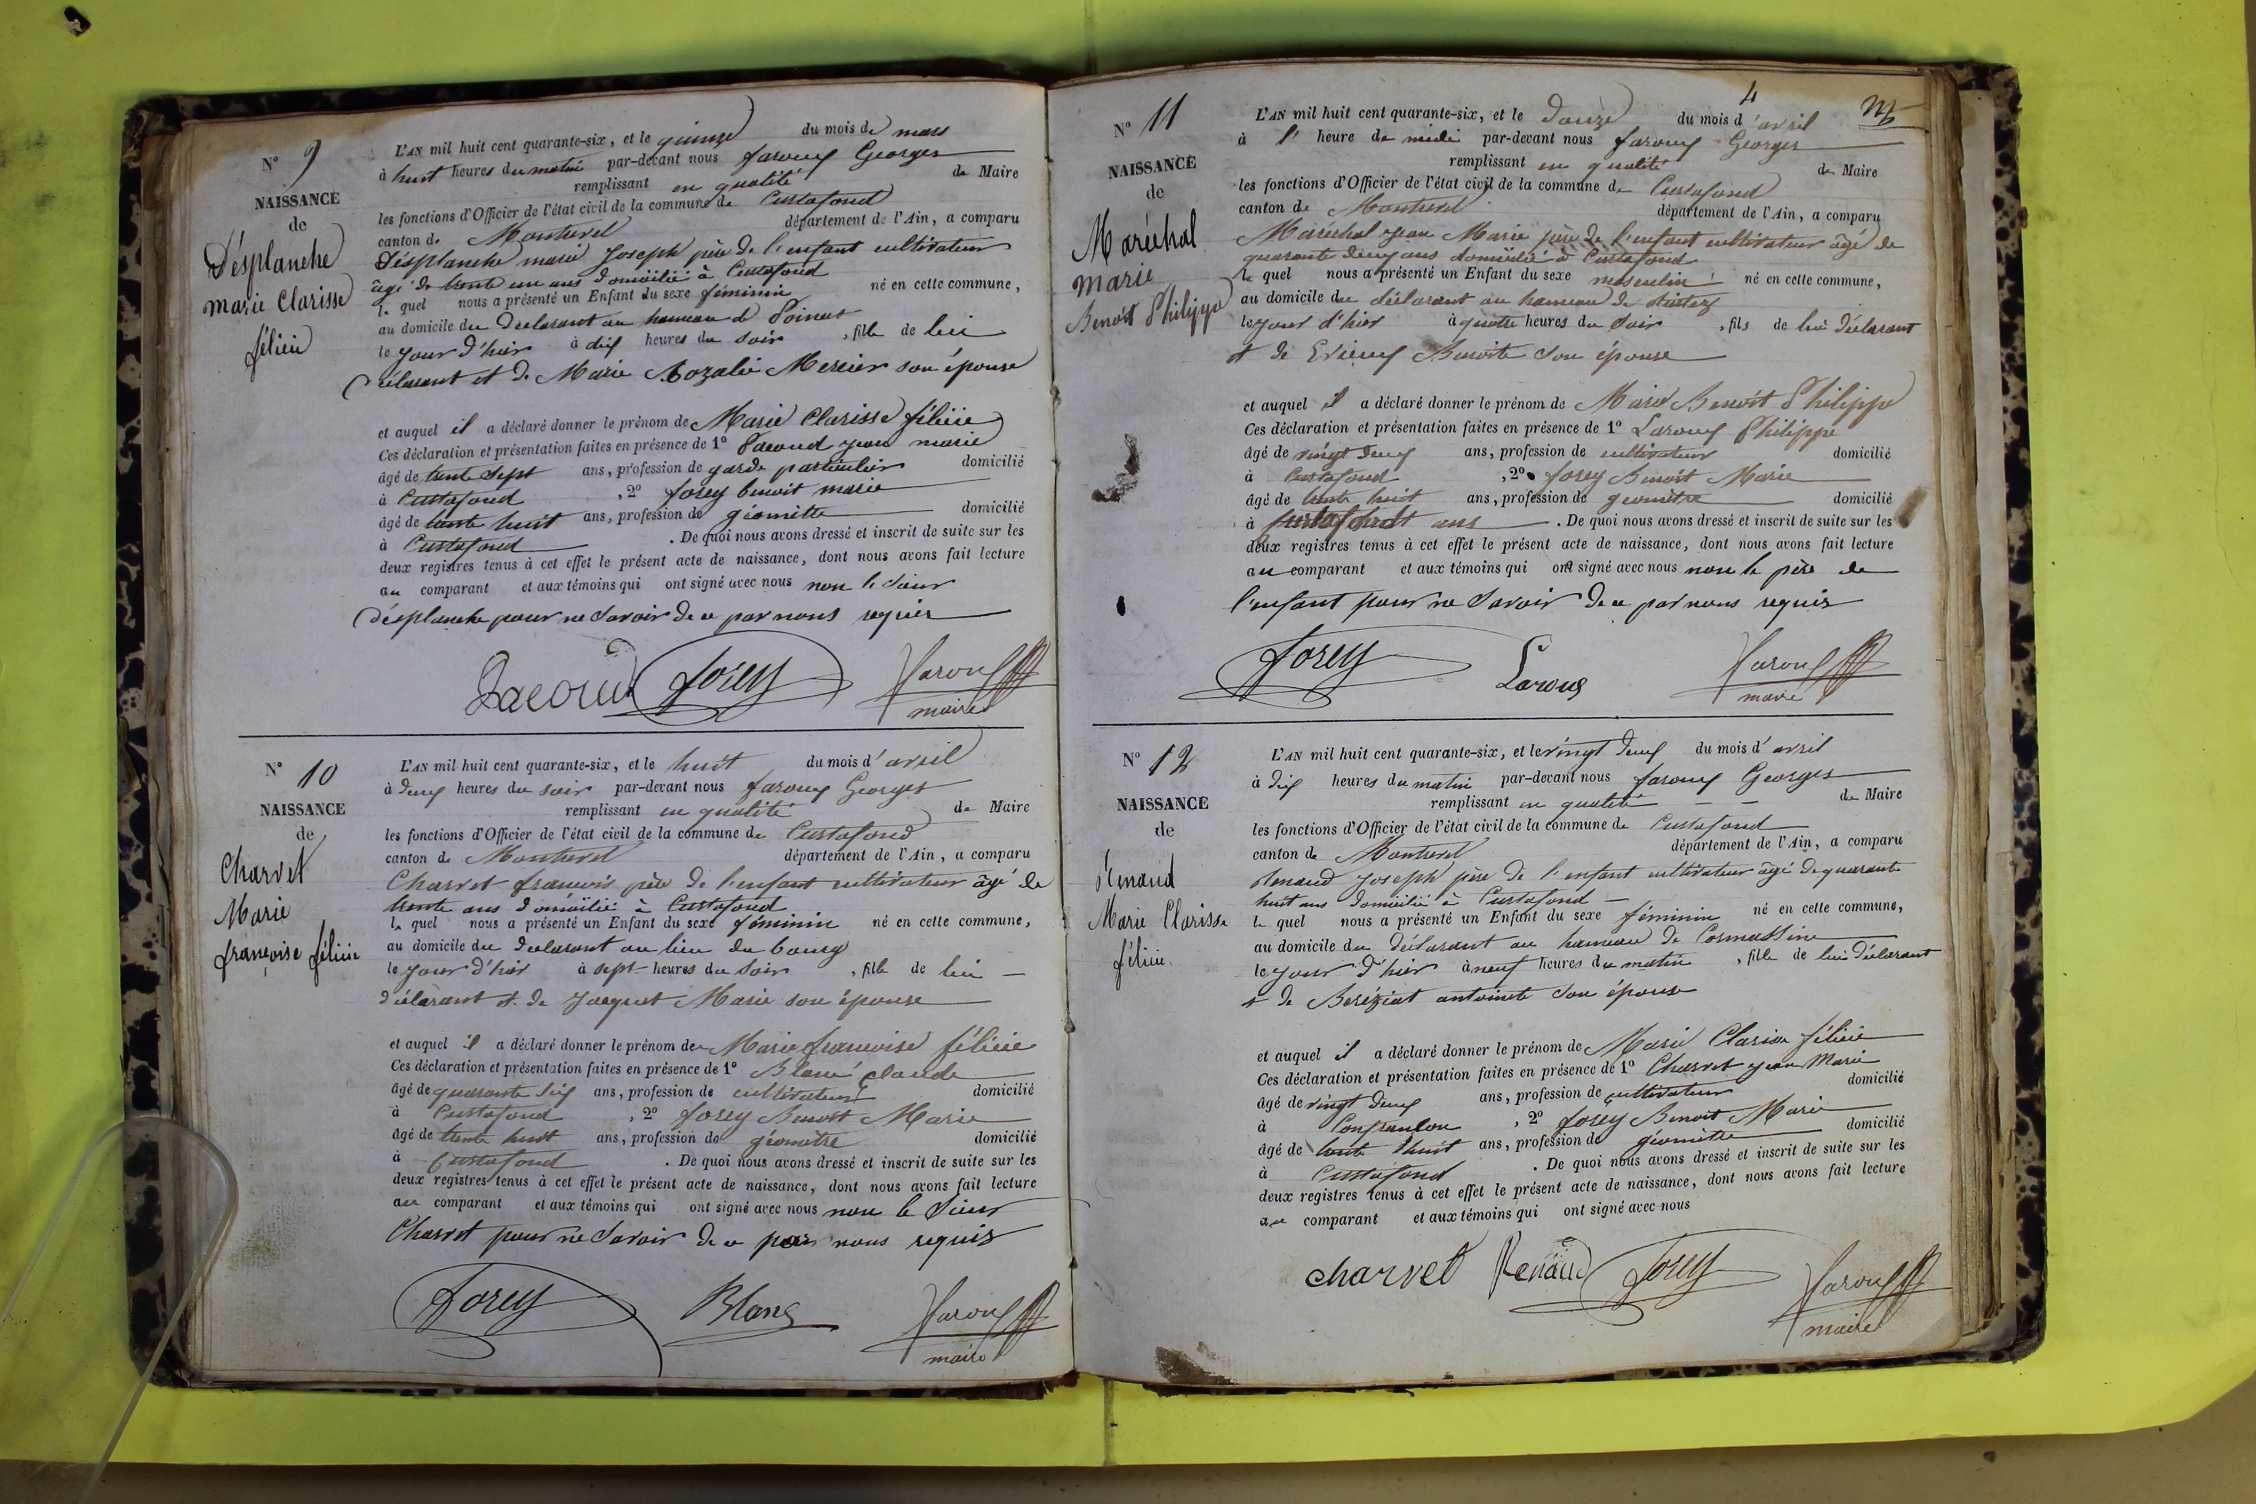 N° 9
NAISSANCE
de
Désplanche
Marie Clarisse
félicie
L'AN mil huit cent quarante-six, et le quinze du mois de mars
à huit heures du matin par-devant nous faroux Georges
remplissant en qualité de Maire
les fonctions d'Officier de l'état civil de la commune de Curtafond
canton de Montrevel département de l'Ain, a comparu
Désplanche marie Joseph père de l'enfant cultivateur
âgé de trente un ans domicilié à Curtafond
le quel nous a présenté un Enfant du sexe féminin né en cette commune,
au domicile du déclarant au hameau de
le jour d'hier à dix heures du soir, fille de lui
déclarant et de Marie Rozalie Mercier son épouse
et auquel il a déclaré donner le prénom de Marie Clarisse félicie
Ces déclaration et présentation faites en présence de 1° Pacoud jean marie
âgé de trente sept ans, profession de garde particulier domicilié
à Curtafond, 2° forey benoit marie
âgé de trente huit ans, profession de géomètre domicilié
à Curtafond. De quoi nous avons dressé et inscrit de suite sur les
deux registres tenus à cet effet le présent acte de naissance, dont nous avons fait lecture
au comparant et aux témoins qui ont signé avec nous non le sieur
désplanche pour ne savoir de ce par nous requis
Pacoud forey faroux
maire
N° 10
NAISSANCE
de
Charvet
Marie
françoise félicie
L'AN mil huit cent quarante-six, et le huit du mois d'avril
à deux heures du soir par-devant nous faroux Georges
remplissant en qualité de Maire
les fonctions d'Officier de l'état civil de la commune de Curtafond
canton de Montrevel département de l'Ain, a comparu
Charvet françois père de l'enfant cultivateur âgé de
trente ans domicilié à Curtafond
le quel nous a présenté un Enfant du sexe féminin né en cette commune,
au domicile du déclarant au lieu du bourg
le jour d'hier à sept heures du soir, fille de lui
déclarant et de Jacquet Marie son épouse
et auquel il a déclaré donner le prénom de Marie françoise félicie
Ces déclaration et présentation faites en présence de 1° Blanc claude
âgé de quarante six ans, profession de cultivateur domicilié
à Curtafond, 2° forey Benoit Marie
âgé de trente huit ans, profession de géomètre domicilié
à Curtafond. De quoi nous avons dressé et inscrit de suite sur les
deux registres tenus à cet effet le présent acte de naissance, dont nous avons fait lecture
au comparant et aux témoins qui ont signé avec nous non le sieur
Charvet pour ne savoir de ce par nous requis
forey Blanc faroux
maire
4
N° 11
NAISSANCE
de
Maréchal
marie
Benoit Philippe
L'AN mil huit cent quarante-six, et le douze du mois d'avril
à l'heure de midi par-devant nous faroux Georges
remplissant en qualité de Maire
les fonctions d'Officier de l'état civil de la commune de Curtafond
canton de Montrevel département de l'Ain, a comparu
Maréchal jean Marie père de l'enfant cultivateur âgé de
quarante deux ans domicilié à Curtafond
le quel nous a présenté un Enfant du sexe masculin né en cette commune,
au domicile du déclarant au hameau de
le jour d'hier à quatre heures du soir, fils de lui déclarant
et de Benoite son épouse
et auquel il a déclaré donner le prénom de Marie Benoit Philippe
Ces déclaration et présentation faites en présence de 1° Laroux Philippe
âgé de vingt deux ans, profession de cultivateur domicilié
à Curtafond, 2° forey Benoit Marie
âgé de trente huit ans, profession de géomètre domicilié
à ans. De quoi nous avons dressé et inscrit de suite sur les
deux registres tenus à cet effet le présent acte de naissance, dont nous avons fait lecture
au comparant et aux témoins qui ont signé avec nous non le père de
l'enfant pour ne savoir de ce par nous requis
forey Laroux faroux
maire
N° 12
NAISSANCE
de
Renaud
Marie Clarisse
félicie
L'AN mil huit cent quarante-six, et le vingt deux du mois d'avril
à dix heures du matin par-devant nous faroux Georges
remplissant en qualité de Maire
les fonctions d'Officier de l'état civil de la commune de Curtafond
canton de Montrevel département de l'Ain, a comparu
Renaud Joseph père de l'enfant cultivateur âgé de quarante
huit ans domicilié à Curtafond
le quel nous a présenté un Enfant du sexe féminin né en cette commune,
au domicile du déclarant au hameau de Cormassine
le jour d'hier à neuf heures du matin, fille de lui déclarant
et de Beréziat antoinete son épouse
et auquel il a déclaré donner le prénom de Marie Clarisse félicie
Ces déclaration et présentation faites en présence de 1° Charvet jean Marie
âgé de vingt deux ans, profession de cultivateur domicilié
à Confrançon, 2° forey Benoit Marie
âgé de trente huit ans, profession de géomètre domicilié
à Curtafond. De quoi nous avons dressé et inscrit de suite sur les
deux registres tenus à cet effet le présent acte de naissance, dont nous avons fait lecture
au comparant et aux témoins qui ont signé avec nous
charvet Renaud forey faroux
maire